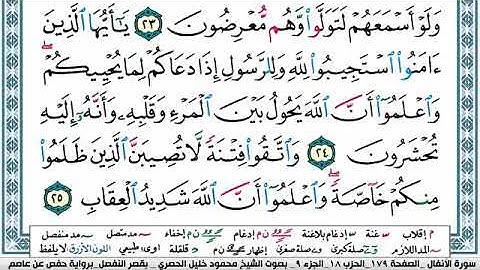 وَلَوْ أَسْمَعَهُمْ لَتَوَلَّوا۟ وَّهُم مُّعْرِضُونَ ٢٣ يَٰٓأَيُّهَا ٱلَّذِينَ
ءَامَنُوا۟ ٱسْتَجِيبُوا۟ لِلَّهِ وَلِلرَّسُولِ إِذَا دَعَاكُمْ لِمَا يُحْيِيكُمْ ۖ
وَٱعْلَمُوٓا۟ أَنَّ ٱللَّهَ يَحُولُ بَيْنَ ٱلْمَرْءِ وَقَلْبِهِۦ وَأَنَّهُۥٓ إِلَيْهِ
تُحْشَرُونَ ٢٤ وَٱتَّقُوا۟ فِتْنَةً لَّا تُصِيبَنَّ ٱلَّذِينَ ظَلَمُوا۟
مِنكُمْ خَآصَّةً ۖ وَٱعْلَمُوٓا۟ أَنَّ ٱللَّهَ شَدِيدُ ٱلْعِقَابِ ٢٥
م إقلاب س غنة س إدغام بلاغنة ن م إدغام ن م إخفاء مد متصل مد منفصل
المد اللازم صلة كبرى صلة صغرى إظهار ن م قلقلة اوى، طبيعي اللون الأزرق لا يلفظ
سورة الأنفال _ الصفحة ١٧٩ _ الحزب ١٨ _ الجزء ٩ _ بصوت الشيخ محمود خليل الحصري _ بقصر المنفصل _ برواية حفص عن عاصم